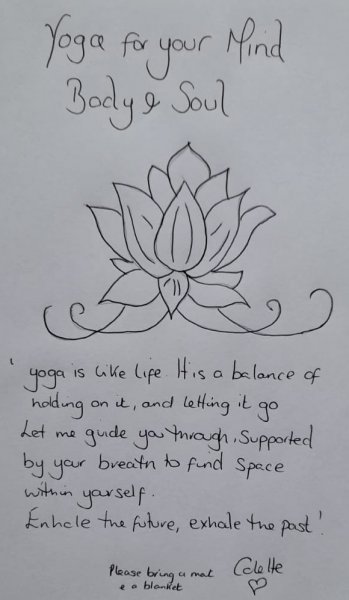 Yoga for your Mind
Body & Soul
'yoga is like life. It is a balance of
holding on it, and letting it go
Let me guide you through, Supported
by your breath to find Space
within yourself.
Enhale the future, exhale the past'.
Please bring a mat
e a blanket
Colette